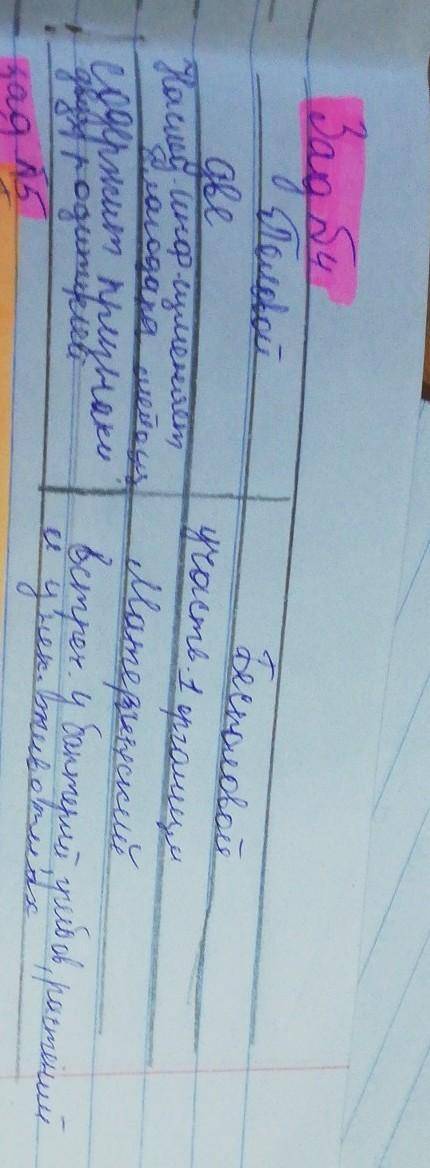 Зад №4
Половой
Бесполовой
две
участв. 1 организм
Наслед. инф-ция
благодаря
Материнский
содержит признаки
двух родителей
Встреч. у бактерий, грибов, растений
и у нек. животных
зад №5